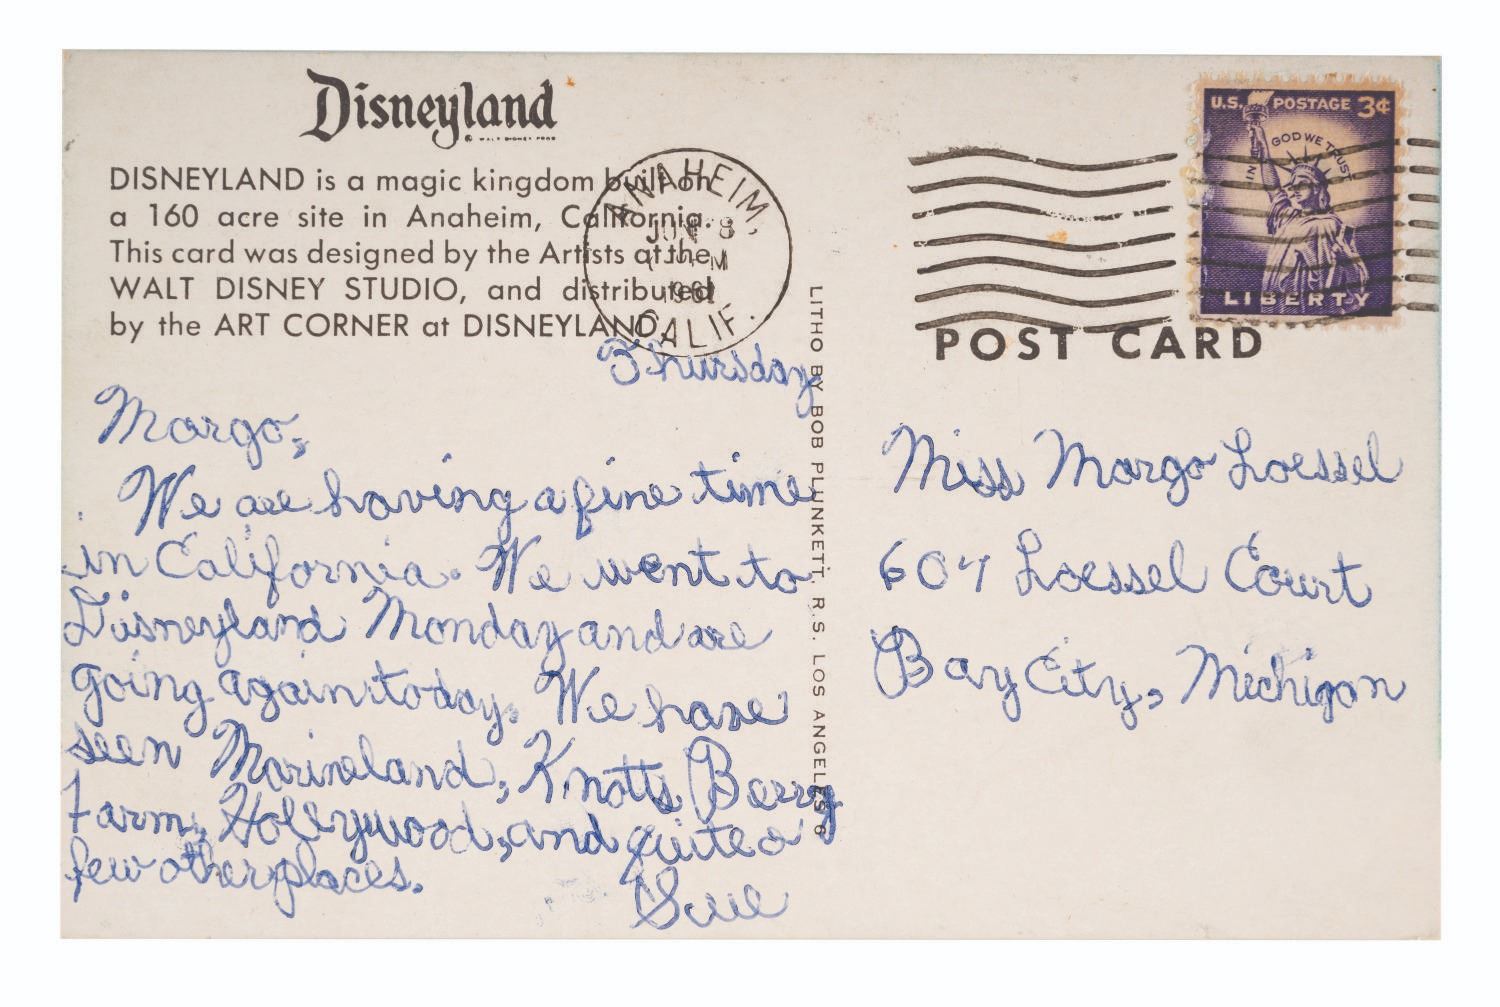 Disneyland
© WALT DISNEY PROD.
DISNEYLAND is a magic kingdom built on
a 160 acre site in Anaheim, California.
This card was designed by the Artists at the
WALT DISNEY STUDIO, and distributed
by the ART CORNER at DISNEYLAND.
ANAHEIM,
JUN 8
PM
196
CALIF.
U.S. POSTAGE 3¢
IN GOD WE TRUST
LIBERTY
POST CARD
LITHO BY BOB PLUNKETT, R.S. LOS ANGELES 6
Thursday
Margo,
We are having a fine time
in California. We went to
Disneyland Monday and are
going again today. We have
seen Marineland, Knotts Berry
Farm, Hollywood, and quite a
few other places.
Sue
Miss Margo Loessel
607 Loessel Court
Bay City, Michigan